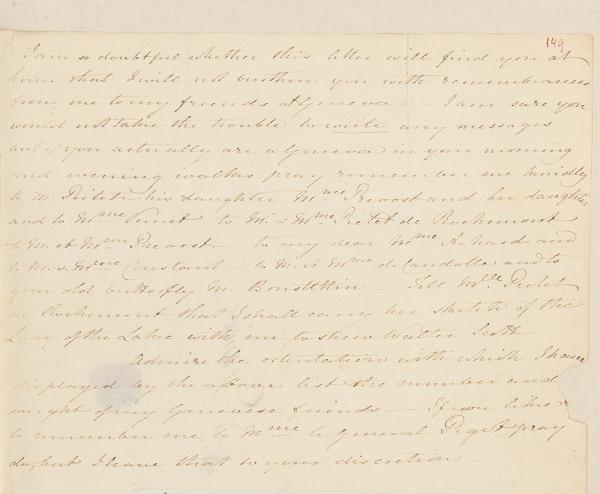 149
I am so doubtful whether this letter will find you at
home that I will not burthen you with remembrances
from me to my friends at Geneva — I am sure you
would not take the trouble to write any messages
but if you actually are a Geneva in your morning
and evening walks pray remember me kindly
to M. Pictet his daughter Mme Prevost and her daughter
and to Mme Vernet — to M. & Mme Pictet de Rochemont
to M. et Mme Prevost — to my dear Mme Achard and
to M. & Mme Constant — to M. et Mme de Candolle and to
your old butterfly M. Bonstettin — Tell Mlle Pictet
de Rochemont that I shall carry her sketch of the
Lady of the Lake with me to shew Walter Scott
Admire the ostentation with which I have
displayed by the above list the number and
weight of my Genevese friends — If you like
to remember me to Mme le General Pictet pray
do, but I leave that to your discretion —